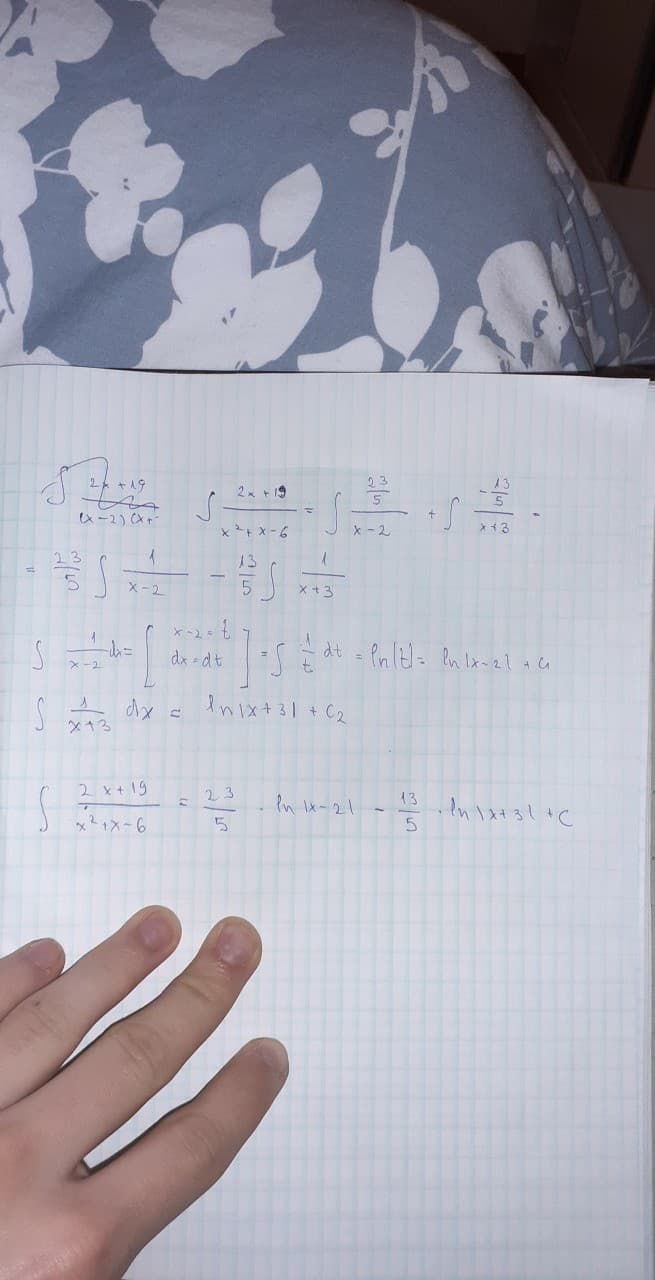 ∫ 2x+19 / (x-2)(x+ ∫ 2x+19 / x²+x-6 = ∫ 23/5 / x-2 + ∫ -13/5 / x+3 =
= 23/5 ∫ 1 / x-2 - 13/5 ∫ 1 / x+3
∫ 1 / x-2 dx = [ x-2=t dx=dt ] = ∫ 1/t dt = ln|t| = ln|x-2| + C₁
∫ 1 / x+3 dx = ln|x+3| + C₂
∫ 2x+19 / x²+x-6 = 23/5 · ln|x-2| - 13/5 · ln|x+3| + C